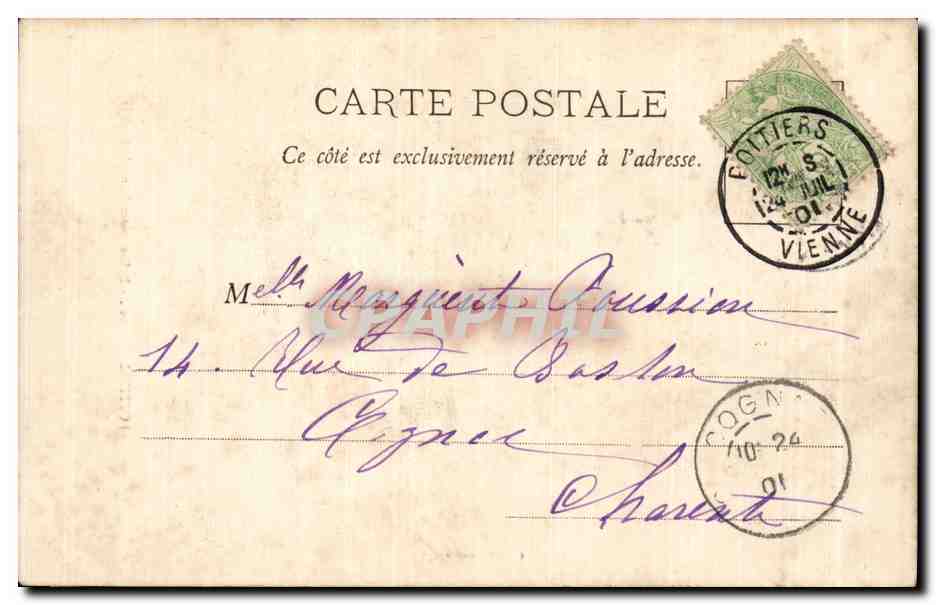 CARTE POSTALE
Ce côté est exclusivement réservé à l'adresse.
POITIERS
12H S
24 JUIL
01
VIENNE
Melle
CPAPHIL
14. Rue de
COGN
10 24
01
Charente